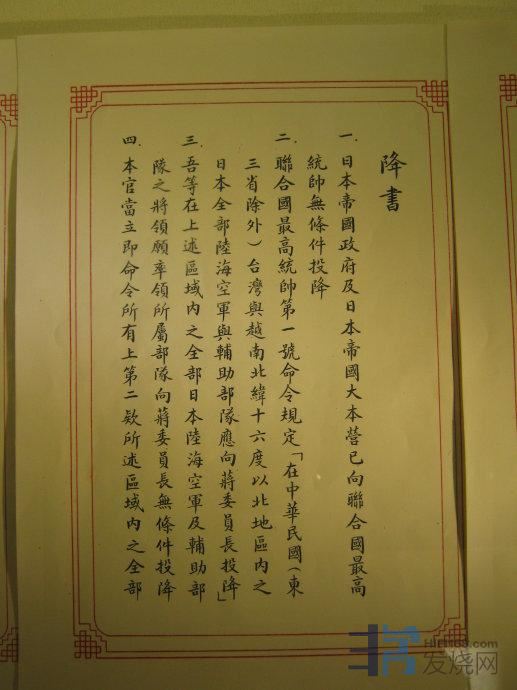 降書
一．日本帝國政府及日本帝國大本營已向聯合國最高
統帥無條件投降
二．聯合國最高統帥第一號命令規定「在中華民國（東
三省除外）台灣與越南北緯十六度以北地區內之
日本全部陸海空軍與輔助部隊應向蔣委員長投降」
三．吾等在上述區域內之全部日本陸海空軍及輔助部
隊之將領願率領所屬部隊向蔣委員長無條件投降
四．本官當立即命令所有上第二欵所述區域內之全部
发烧网